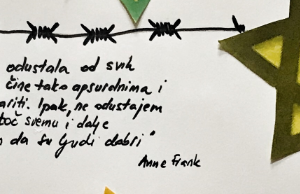 odustala od svih
čine tako apsurdnima i
ariti. Ipak, ne odustajem
oč svemu i dalje
da su ljudi dobri"
Anne Frank